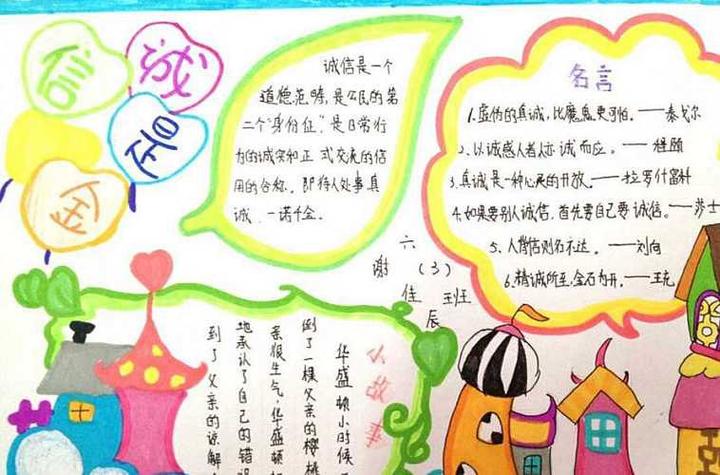 诚信
是金
诚信是一个
道德范畴,是公民的第
二个“身份证”,是日常行
为的诚实和正式交流的信
用的合称。即待人处事真
诚、一诺千金。
名言
1.虚伪的真诚,比魔鬼更可怕。——泰戈尔
2.以诚感人者,人亦诚而应。——程颐
3.真诚是一种心灵的开放。——拉罗什富科
4.如果要别人诚信,首先要自己要诚信。——莎士
5、人背信则名不达。——刘向
6.精诚所至,金石为开。——王充
六(3)班
谢佳辰
小故事
华盛顿小时候
倒了一棵父亲的樱桃
亲很生气,华盛顿
地承认了自己的错误
到了父亲的谅解